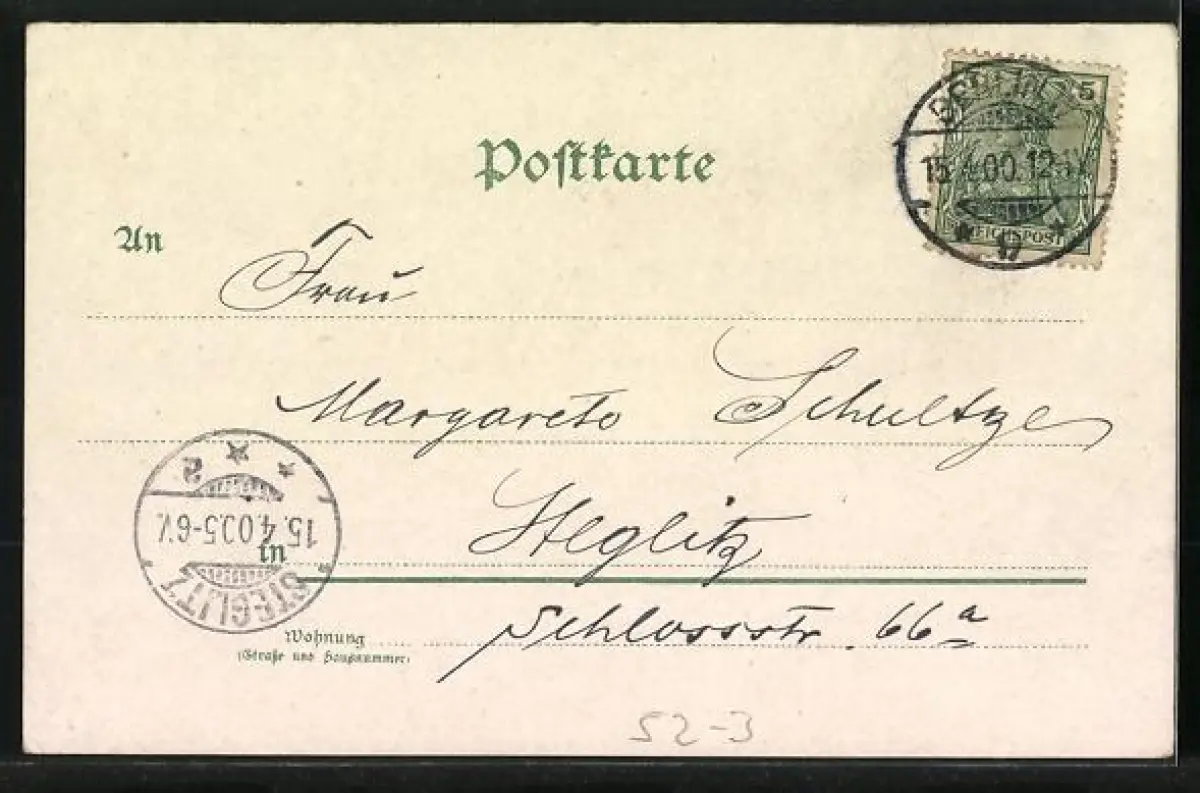 Postkarte
5
REICHSPOST
15.4.00.12-1V.
An
Frau
Margarete Schultze
2
15.4.00.5-6V.
STEGLITZ
in Steglitz
Schlossstr. 66a
Wohnung
(Straße und Hausnummer)
52-3